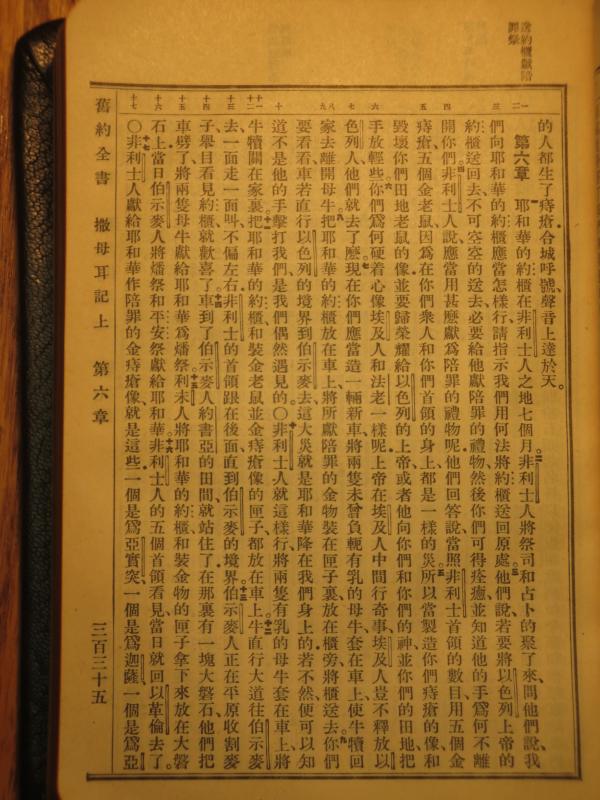 送約櫃獻賠
罪祭
的人都生了痔瘡、合城呼號聲音上達於天。
第六章　耶和華的約櫃在非利士人之地七個月、非利士人將祭司和占卜的聚了來、問他們說、我
們向耶和華的約櫃應當怎樣行、請指示我們用何法將約櫃送回原處、他們說、若要將以色列上帝的
約櫃送回去、不可空空的送去、必要給他獻賠罪的禮物、然後你們可得痊癒、並知道他的手爲何不離
開你們、非利士人說、應當用甚麽獻爲賠罪的禮物呢、他們回答說、當照非利士首領的數目、用五個金
痔瘡、五個金老鼠、因爲在你們衆人和你們首領的身上、都是一樣的災、所以當製造你們痔瘡的像、和
毀壞你們田地老鼠的像、並要歸榮耀給以色列的上帝、或者他向你們和你們的神、並你們的田地、把
手放輕些、你們爲何硬着心像埃及人和法老一樣呢、上帝在埃及人中間行奇事、埃及人豈不釋放以
色列人、他們就去了麽、現在你們應當造一輛新車、將兩隻未曾負軛有乳的母牛套在車上、使牛犢回
家去、離開母牛、把耶和華的約櫃放在車上、將所獻賠罪的金物裝在匣子裏、放在櫃旁、將櫃送去、你們
要看看、車若直行以色列的境界到伯示麥去、這大災就是耶和華降在我們身上的、若不然、便可以知
道不是他的手擊打我們、是我們偶然遇見的。〇非利士人就這樣行、將兩隻有乳的母牛套在車上、將
牛犢關在家裏、把耶和華的約櫃和裝金老鼠並金痔瘡像的匣子、都放在車上、牛直行大道、往伯示麥
去、一面走一面叫、不偏左右、非利士的首領跟在後面、直到伯示麥的境界、伯示麥人正在平原收割麥
子、舉目看見約櫃、就歡喜了、車到了伯示麥人約書亞的田間、就站住了、在那裏有一塊大磐石、他們把
車劈了、將兩隻母牛獻給耶和華爲燔祭、利未人將耶和華的約櫃和裝金物的匣子拿下來、放在大磐
石上、當日伯示麥人將燔祭和平安祭獻給耶和華、非利士人的五個首領看見、當日就回以革倫去了。
〇非利士人獻給耶和華作賠罪的金痔瘡像、就是這些、一個是爲亞實突、一個是爲迦薩、一個是爲亞
舊約全書　撒母耳記上　第六章　三百三十五